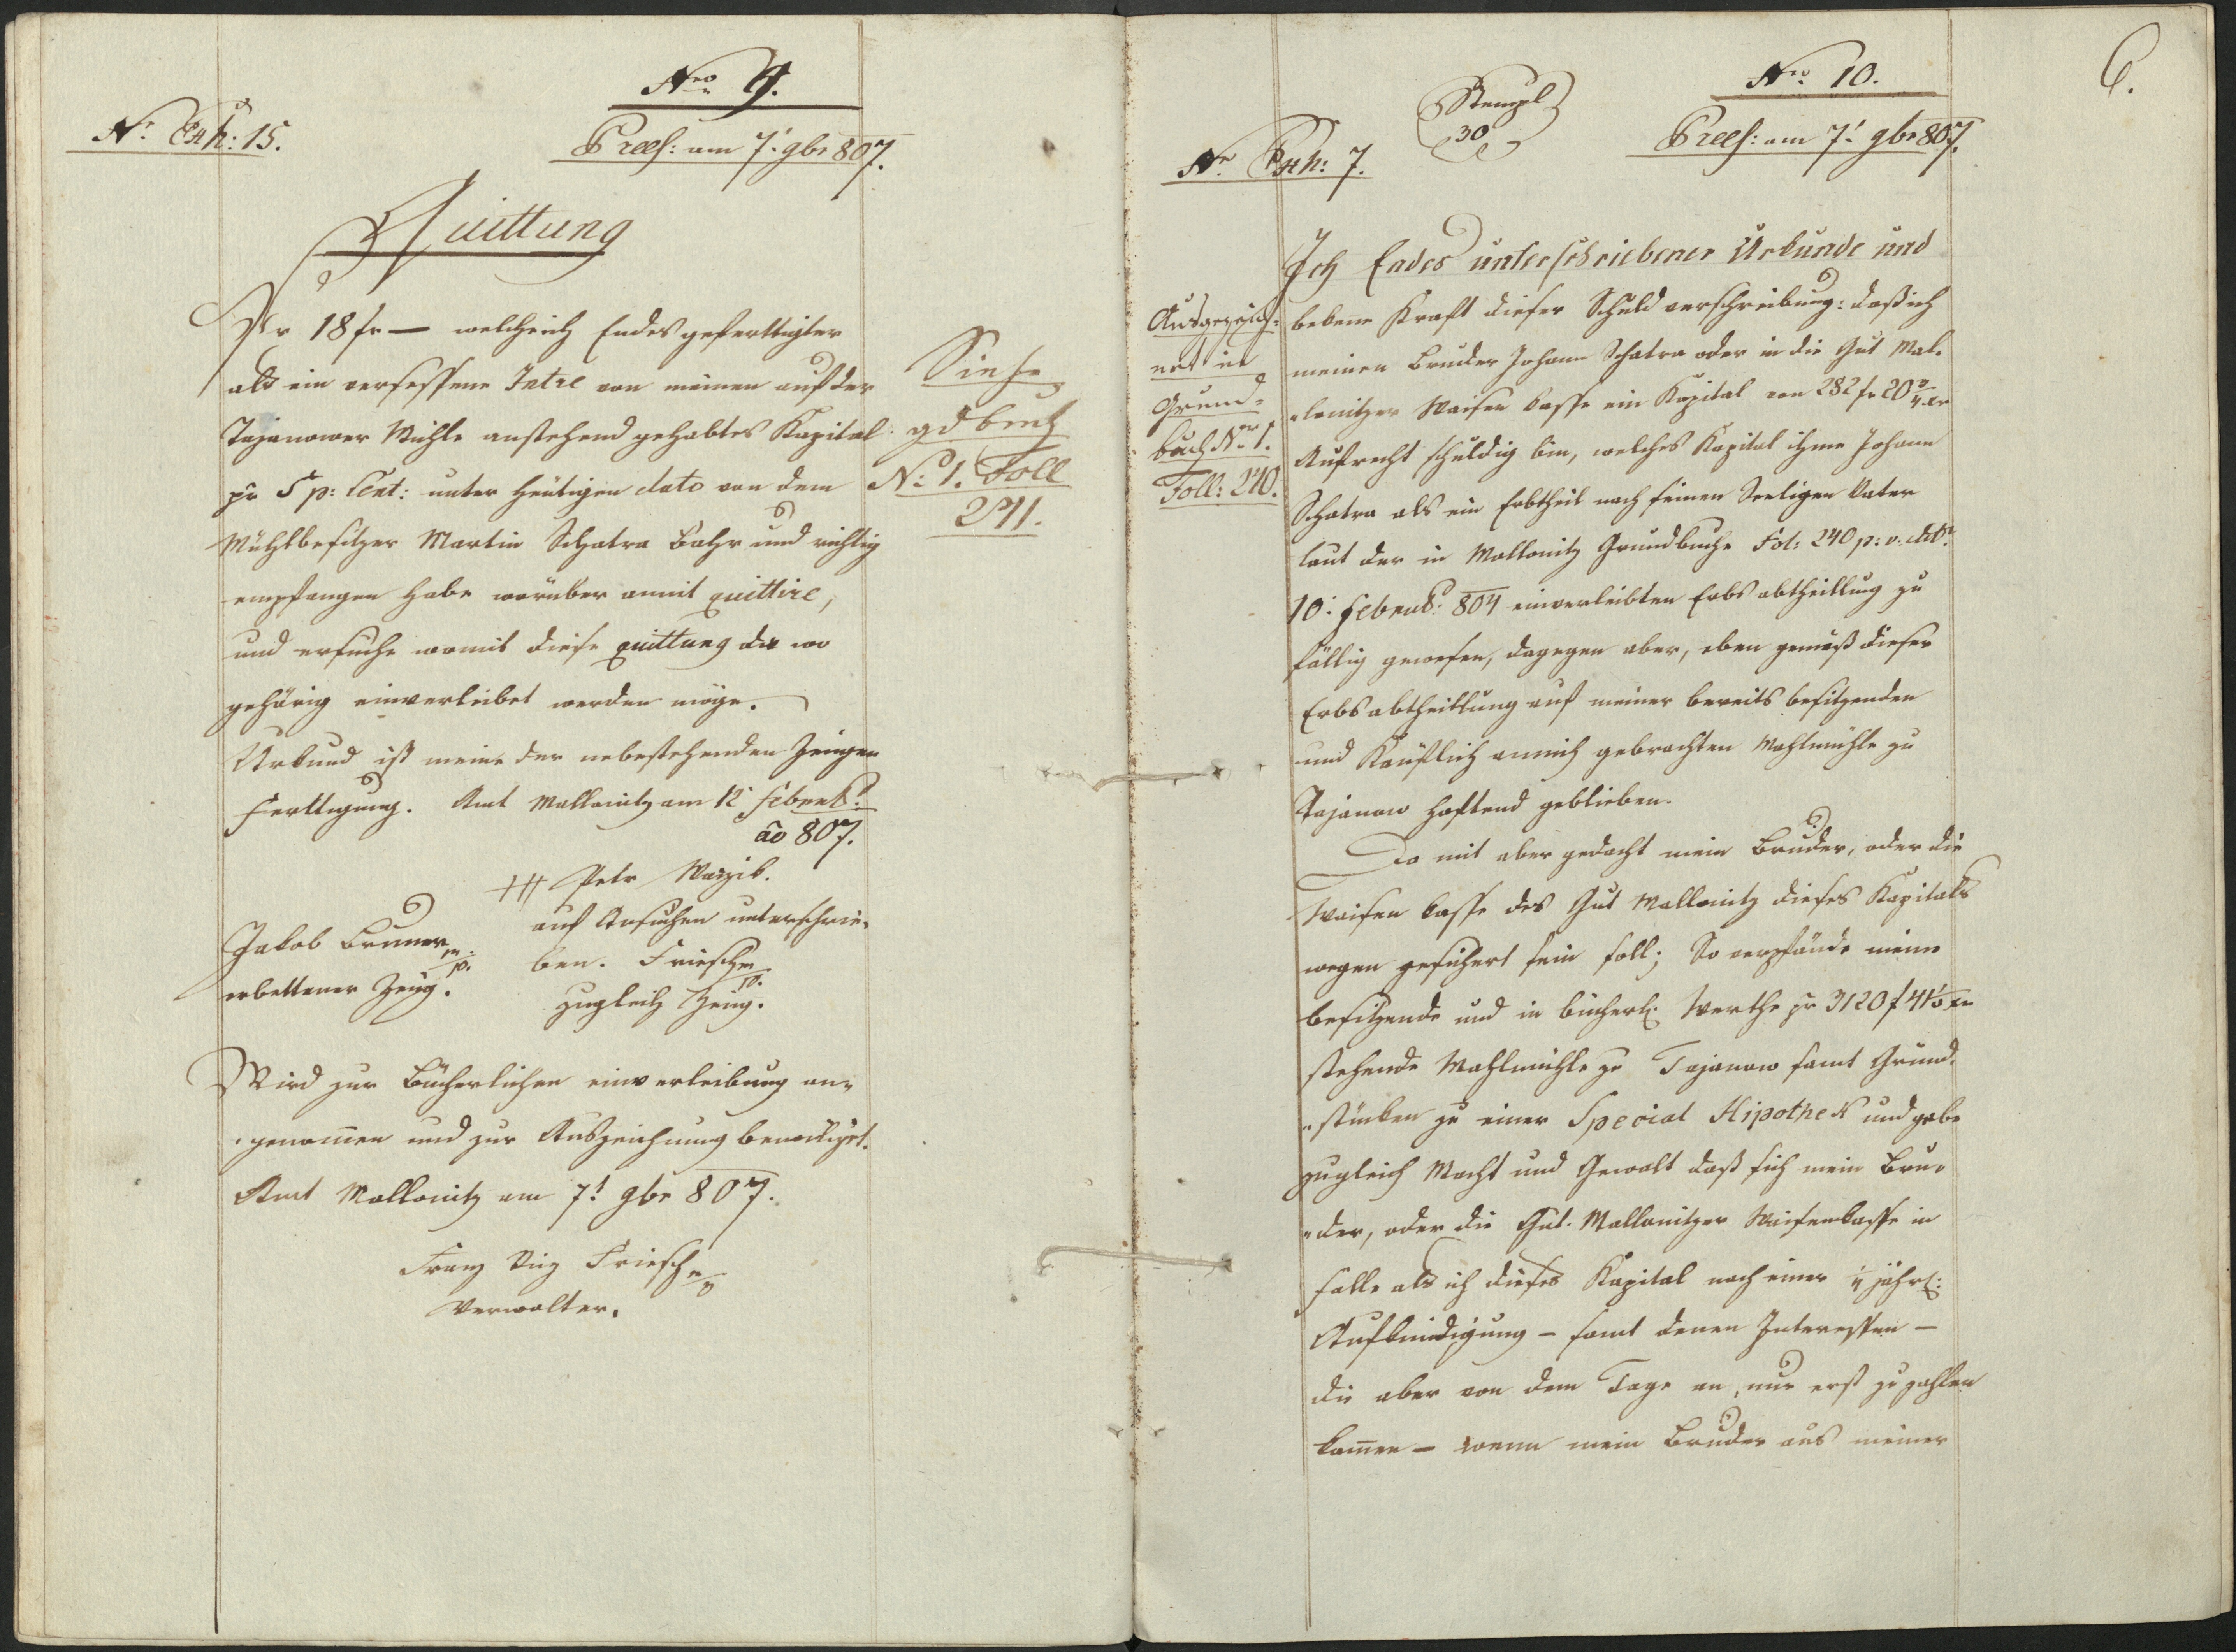 Nro 9.
Nr. Exh: 15.
Prees: am 7t. 9br 807.
Quittung
Pr 18 fr — welche ich Endesgeferttigter
als ein versessene Intre von meinen auf der
Tajanower Mühle anstehend gehabtes Kapital
pr 5 p: Cent: unter heutigen dato von dem
Mühlbesitzer Martin Schatra Bahr und richtig
empfangen habe worüber anmit quittire,
und ersuche womit diese quittung da wo
gehörig einverleibet werden möge.
Urkund ist meine der nebestehenden Zeugen
Ferttigung. Amt Mallonitz am 12t Februar:
ao 807.
+++ Petr
auf Ansuchen unterschrie-
ben. Friesch mp.
zugleich Zeug.
Jakob Bruner mp.
erbettener Zeug.
Wird zur Bücherlichen einverleibung an-
genomen und zur Auszeichnung bewilliget.
Amt Mallonitz am 7t. 9br 807.
Franz Friesch mp
Verwalter.
Siehe
gdbuch
No 1. Foll
241.
6.
Nro 10.
Stempl
30
Nr. Exh: 7.
Prees: am 7t. 9br 807.
Ausgezeich-
net in
Grund-
buch Nro 1.
Foll: 240.
Ich Endes unterschriebener Urkunde und
bekenne Kraft dieser Schuldverschreibung: daß ich
meinen Bruder Johann Schatra oder in die Gut Mal-
lonitzer Waisen kasse ein Kapital von 282 fr 20 3/4 xr
Aufrecht schuldig bin, welches Kapital ihme Johann
Schatra als ein Erbtheil nach seinen Seeligen Vater
laut der in Mallonitz Grundbuche Fol: 240 p: v. ddto
10t. Februar: 804 einverleibten Erbsabtheillung zu
fällig gewesen, dagegen aber, eben gemäß dieser
Erbsabtheillung auf meiner bereits besitzenden
und Käuflich anmich gebrachten Mahlmühle zu
Tajanow haftend geblieben.
Da mit aber gedacht mein Bruder, oder die
Waisen kasse des Gut Mallonitz dieses Kapitals
wegen gesichert sein soll; So verpfände meine
besitzende und in bücherl: Werthe pr 3120 f 41 xr
stehende Mahlmühle zu Tajanow samt Grund-
stücken zu einer Special Hipothek und gebe
zugleich Macht und Gewalt daß sich mein Bru-
der, oder die Gut Mallonitzer Waisenkasse in
falle als ich dieses Kapital nach einer jährl:
Aufkündigung – samt denen Interessen –
die aber von dem Tage an, nur erst zu zahlen
komen – wenn mein Bruder aus meiner